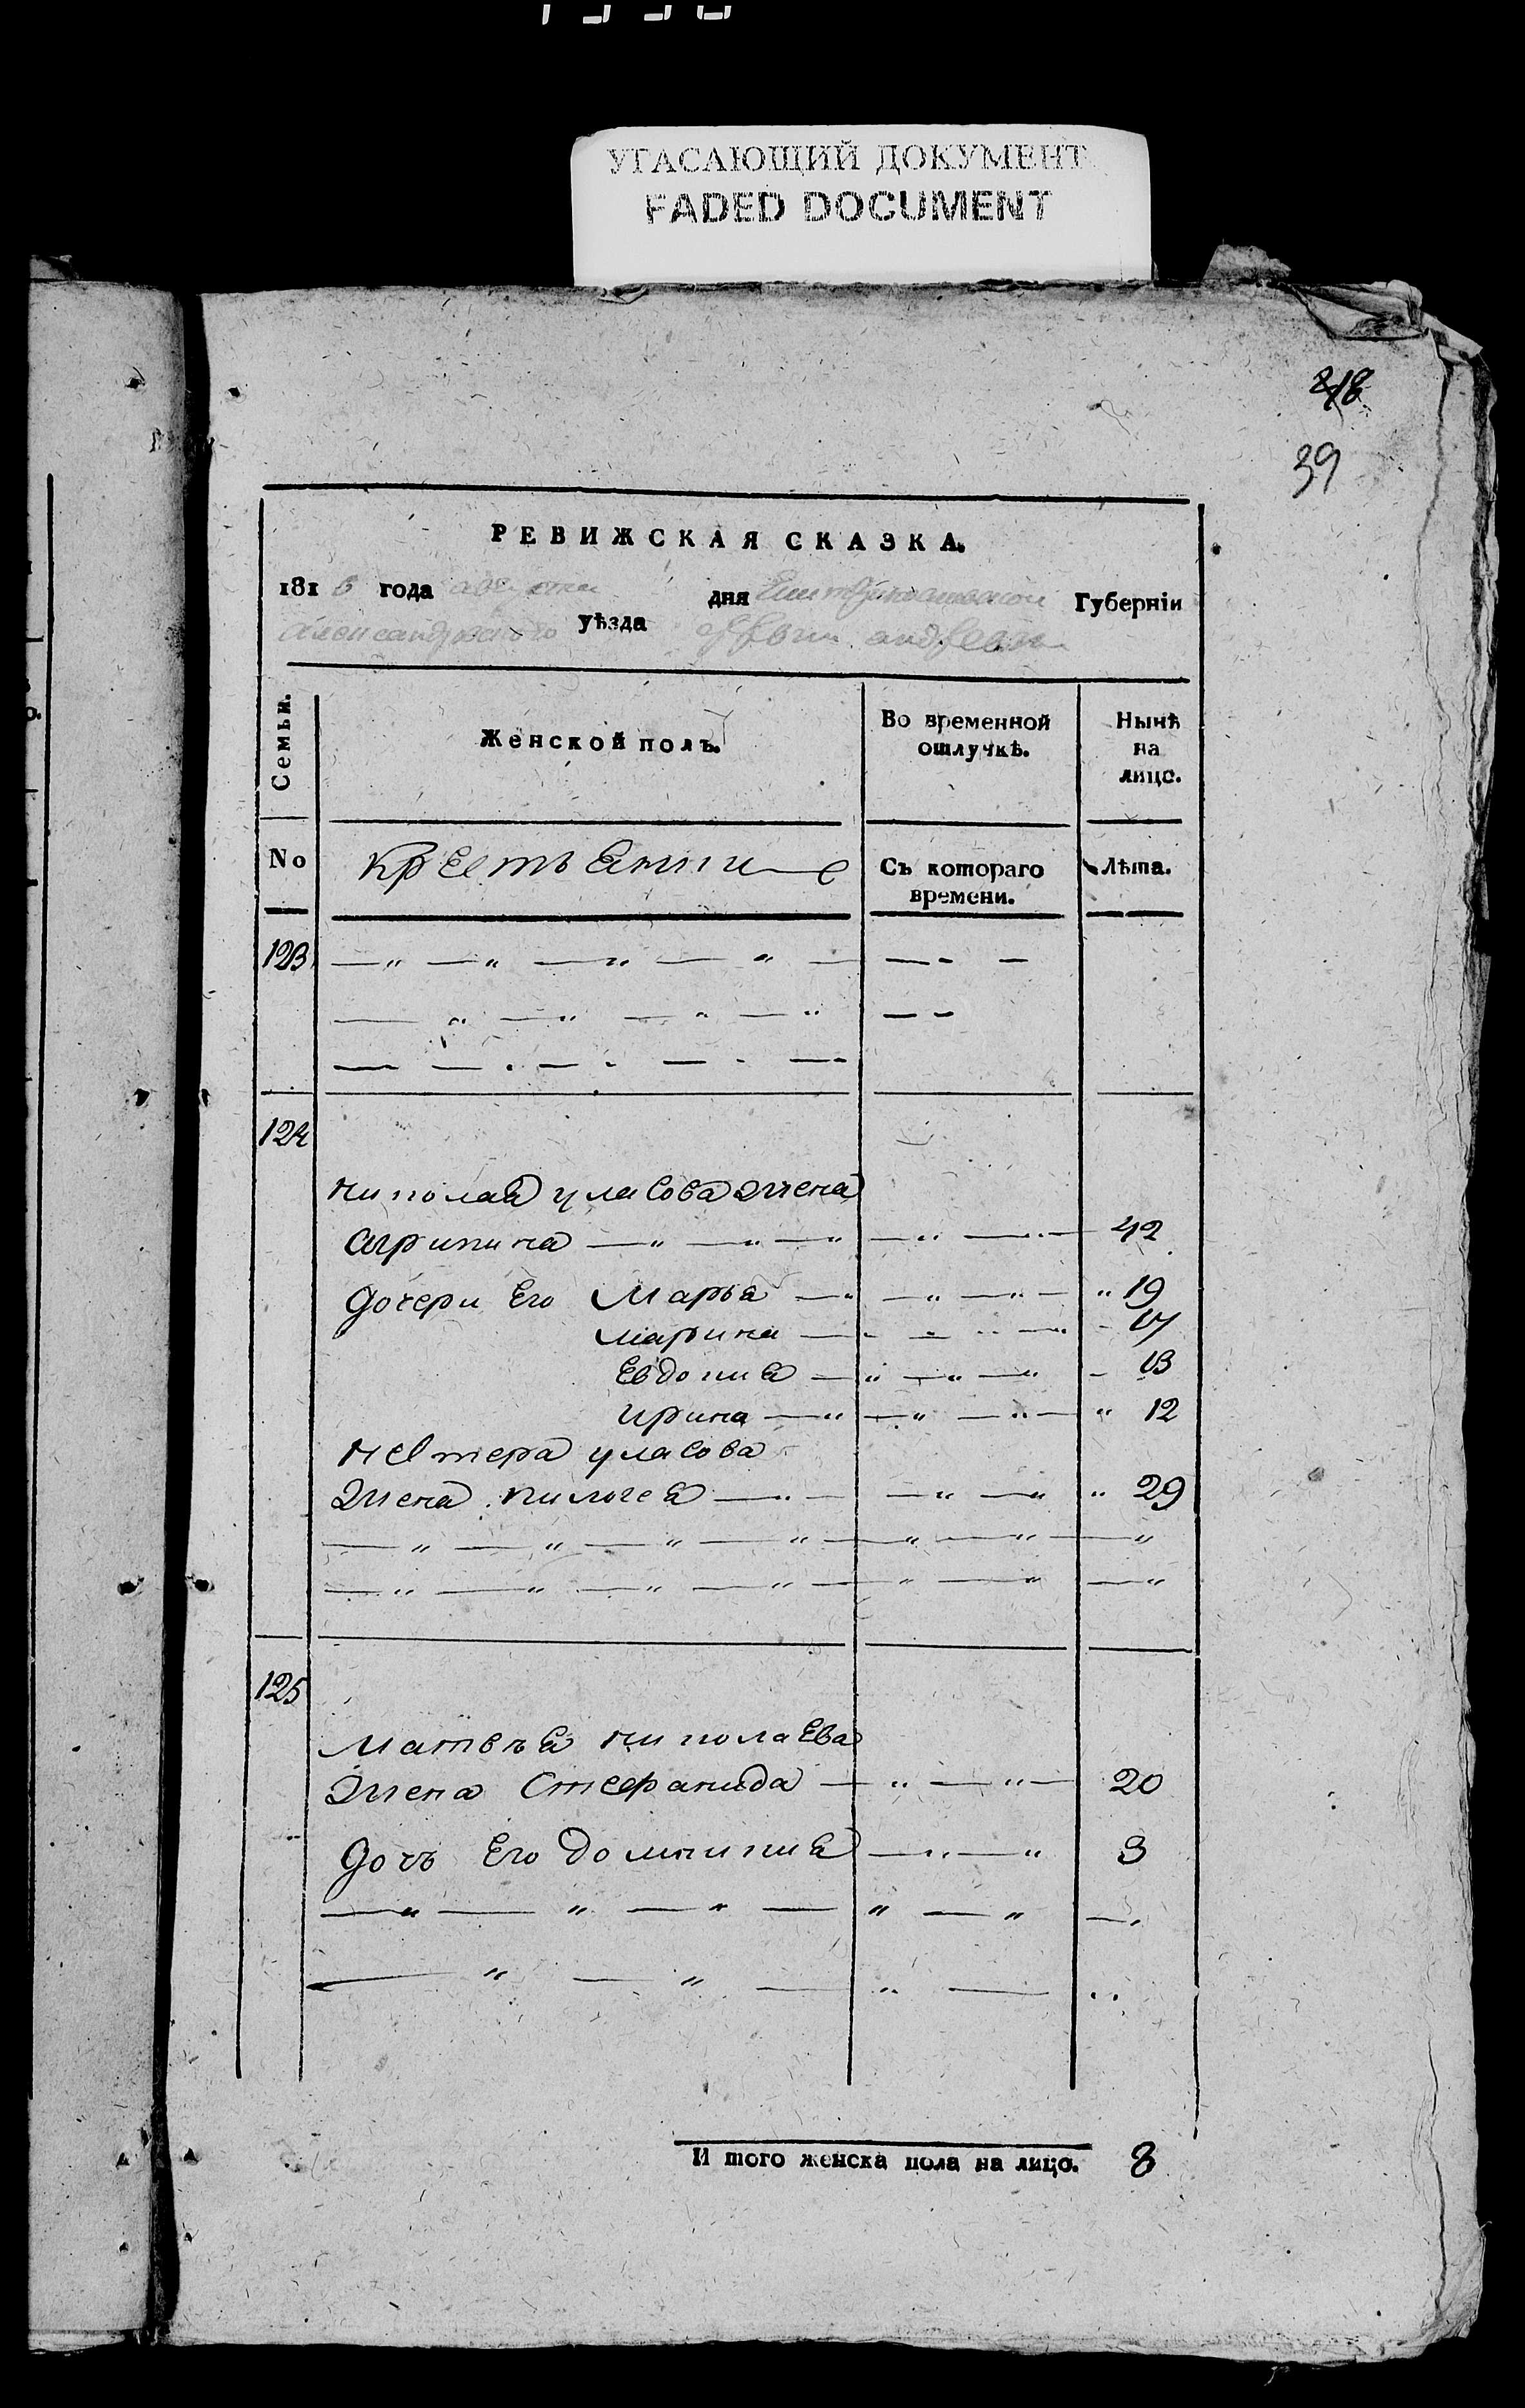 УГАСАЮЩИЙ ДОКУМЕНТ
FADED DOCUMENT
218
39
РЕВИЖСКАЯ СКАЗКА.
1816 года августа дня Екатеринославской Губернїи
александровского уѣзда
Семьи.
Женской полъ.
Во временной отлучкѣ.
Нынѣ на лицо.
No
крестьянки
Съ котораго времени.
Лѣта.
123
124
николая уласова жена
агрипина 42
дочери Его Марья 19
марина 17
Евдокия 13
ирина 12
нестера уласова
жена пилагея 29
125
матвъя николаЕва
жена Стефанида 20
дочъ Его домникия 3
И того женска пола на лицо. 8